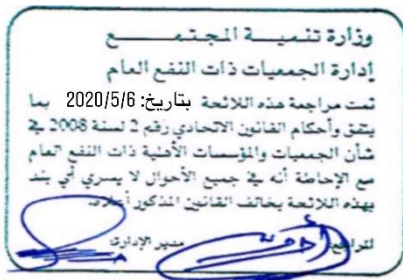 وزارة تنميـــــة المجتمـــــــع
إدارة الجمعيات ذات النفع العام
تمت مراجعة هذه اللائحة بتاريخ: 2020/5/6 بما
يتفق وأحكام القانون الاتحادي رقم 2 لسنة 2008 في
شأن الجمعيات والمؤسسات الأهلية ذات النفع العام
مع الإحاطة أنه في جميع الأحوال لا يسري أي بند
بهذه اللائحة يخالف القانون المذكور أعلاه.
المراجع: مدير الإدارة: